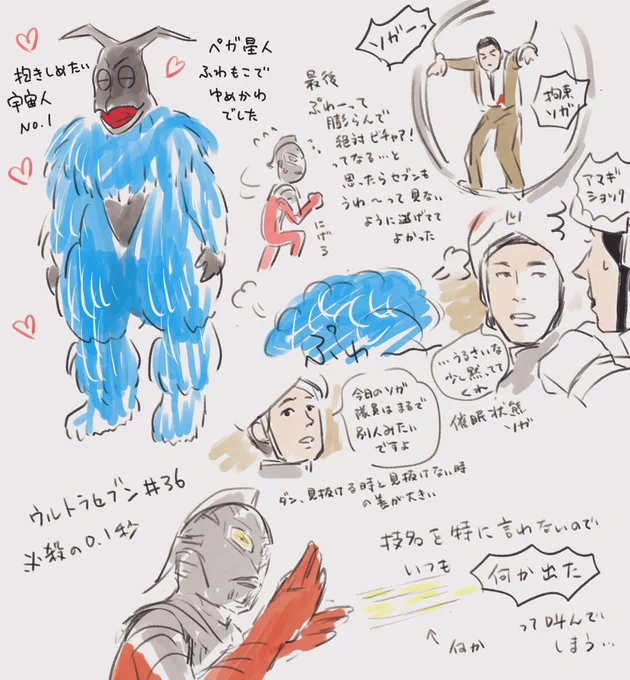 抱きしめたい
宇宙人
No.1
ペガ星人
ふわもこで
ゆめかわ
でした
ソガーっ
拘束
ソガ
最後
ぷわーって
膨らんで
絶対ビチャア!
ってなる…と
思ったらセブンも
うわ〜って見ない
ように逃げてて
よかった
にげろ
アマギ
ショック
ぷわ
…うるさいな
少し黙ってて
くれ
催眠状態
ソガ
今日のソガ
隊員はまるで
別人みたい
ですよ
ダン、見抜ける時と見抜けない時
の差が大きい
ウルトラセブン#36
必殺の0.1秒
技名を特に言わないので
いつも
何か出た
って叫んで
しまう…
何か